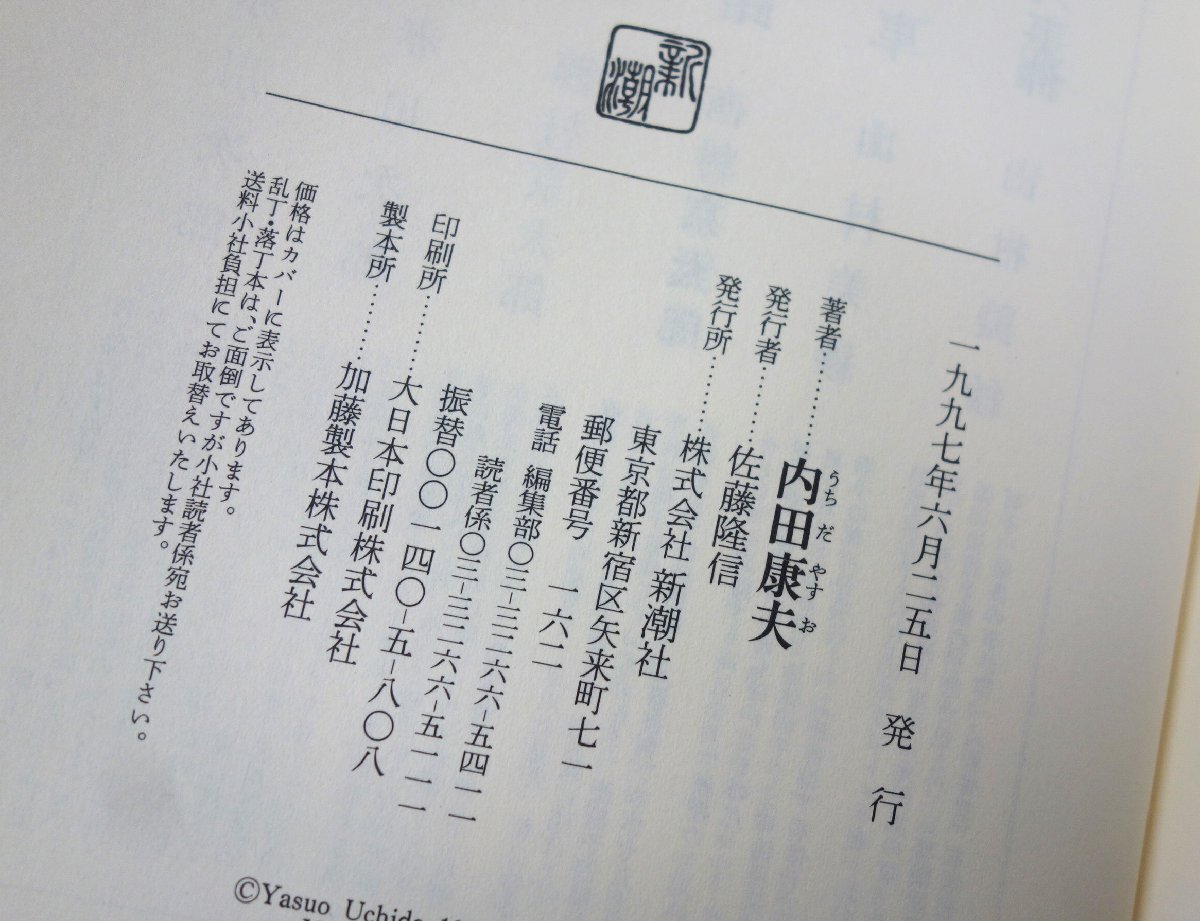 新潮
一九九七年六月二五日 発行
著者…………内田康夫
うちだ やすお
発行者…………佐藤隆信
発行所…………株式会社 新潮社
東京都新宿区矢来町七一
郵便番号 一六二
電話 編集部〇三-三二六六-五四一一
読者係〇三-三二六六-五一一一
振替〇〇一四〇-五-八〇八
印刷所…………大日本印刷株式会社
製本所…………加藤製本株式会社
価格はカバーに表示してあります。
乱丁・落丁本は、ご面倒ですが小社読者係宛お送り下さい。
送料小社負担にてお取替えいたします。
©Yasuo Uchida